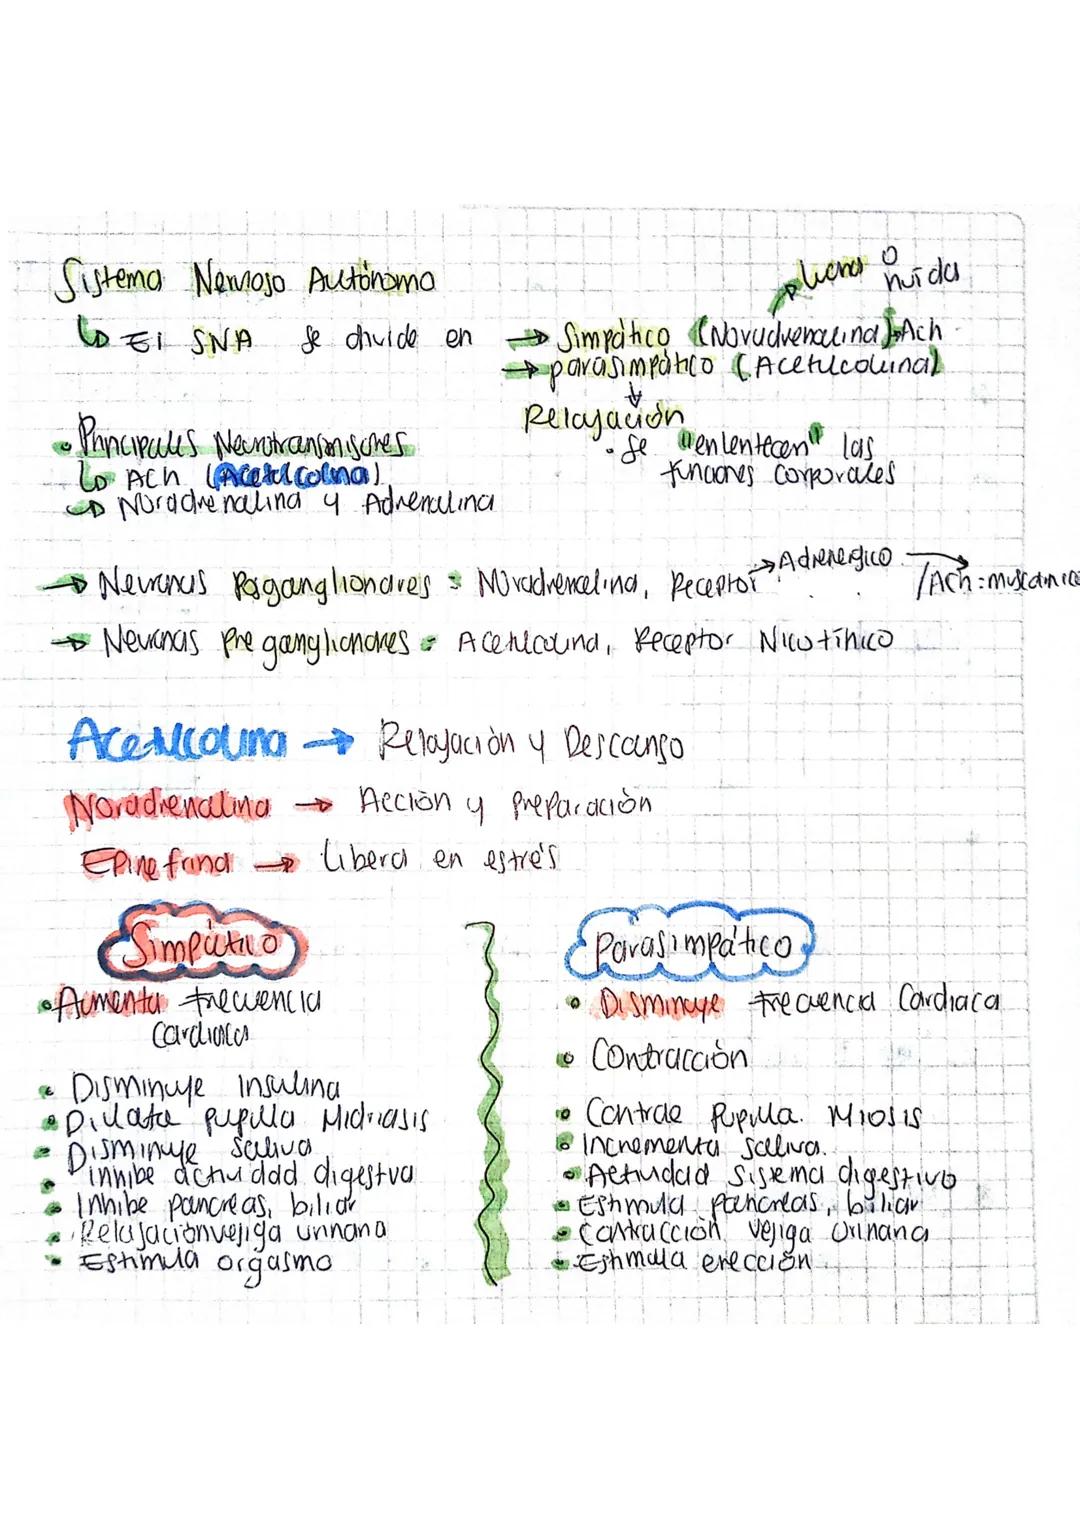 Sistema Nervioso Autónomo
lucha o huida
↳ El SNA se divide en → Simpático (Noradrenalina) → Ach
→ parasimpático (Acetilcolina)
↓
Relajación
• Se "enlentecen" las
funciones corporales
• Principales Neurotransmisores
↳ Ach (Acetilcolina)
↳ Noradrenalina y Adrenalina
→ Neuronas Posganglionares: Noradrenalina, Receptor → Adrenergico → /Ach: muscarinico
→ Neuronas Preganglionares: Acetilcolina, Receptor Nicotínico
Acetilcolina → Relajación y Descanso
Noradrenalina → Acción y Preparación
Epinefrina → Libera en estrés
Simpático
• Aumenta frecuencia
Cardiaca
• Disminuye Insulina
• Dilata pupila Midriasis
• Disminuye Saliva
• inhibe actividad digestiva
• Inhibe pancreas, biliar
• Relajación vejiga urinaria
• Estimula orgasmo
Parasimpático
• Disminuye frecuencia Cardiaca
• Contracción
• Contrae Pupila. Miosis
• Incrementa Saliva.
• Actividad Sistema digestivo
• Estimula pancreas, biliar
• Contracción vejiga Urinaria
• Estimula erección